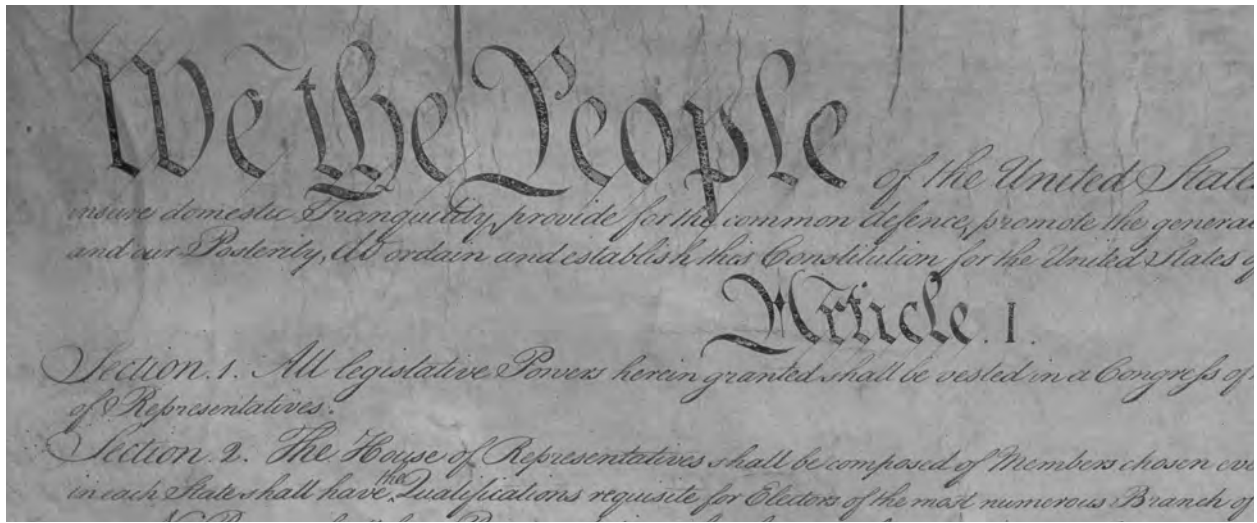 We the People of the United State
insure domestic Tranquility, provide for the common defence, promote the genera
and our Posterity, do ordain and establish this Constitution for the United States of
Article. I.
Section. 1. All legislative Powers herein granted shall be vested in a Congress of
of Representatives.
Section. 2. The House of Representatives shall be composed of Members chosen eve
in each State shall have the Qualifications requisite for Electors of the most numerous Branch of